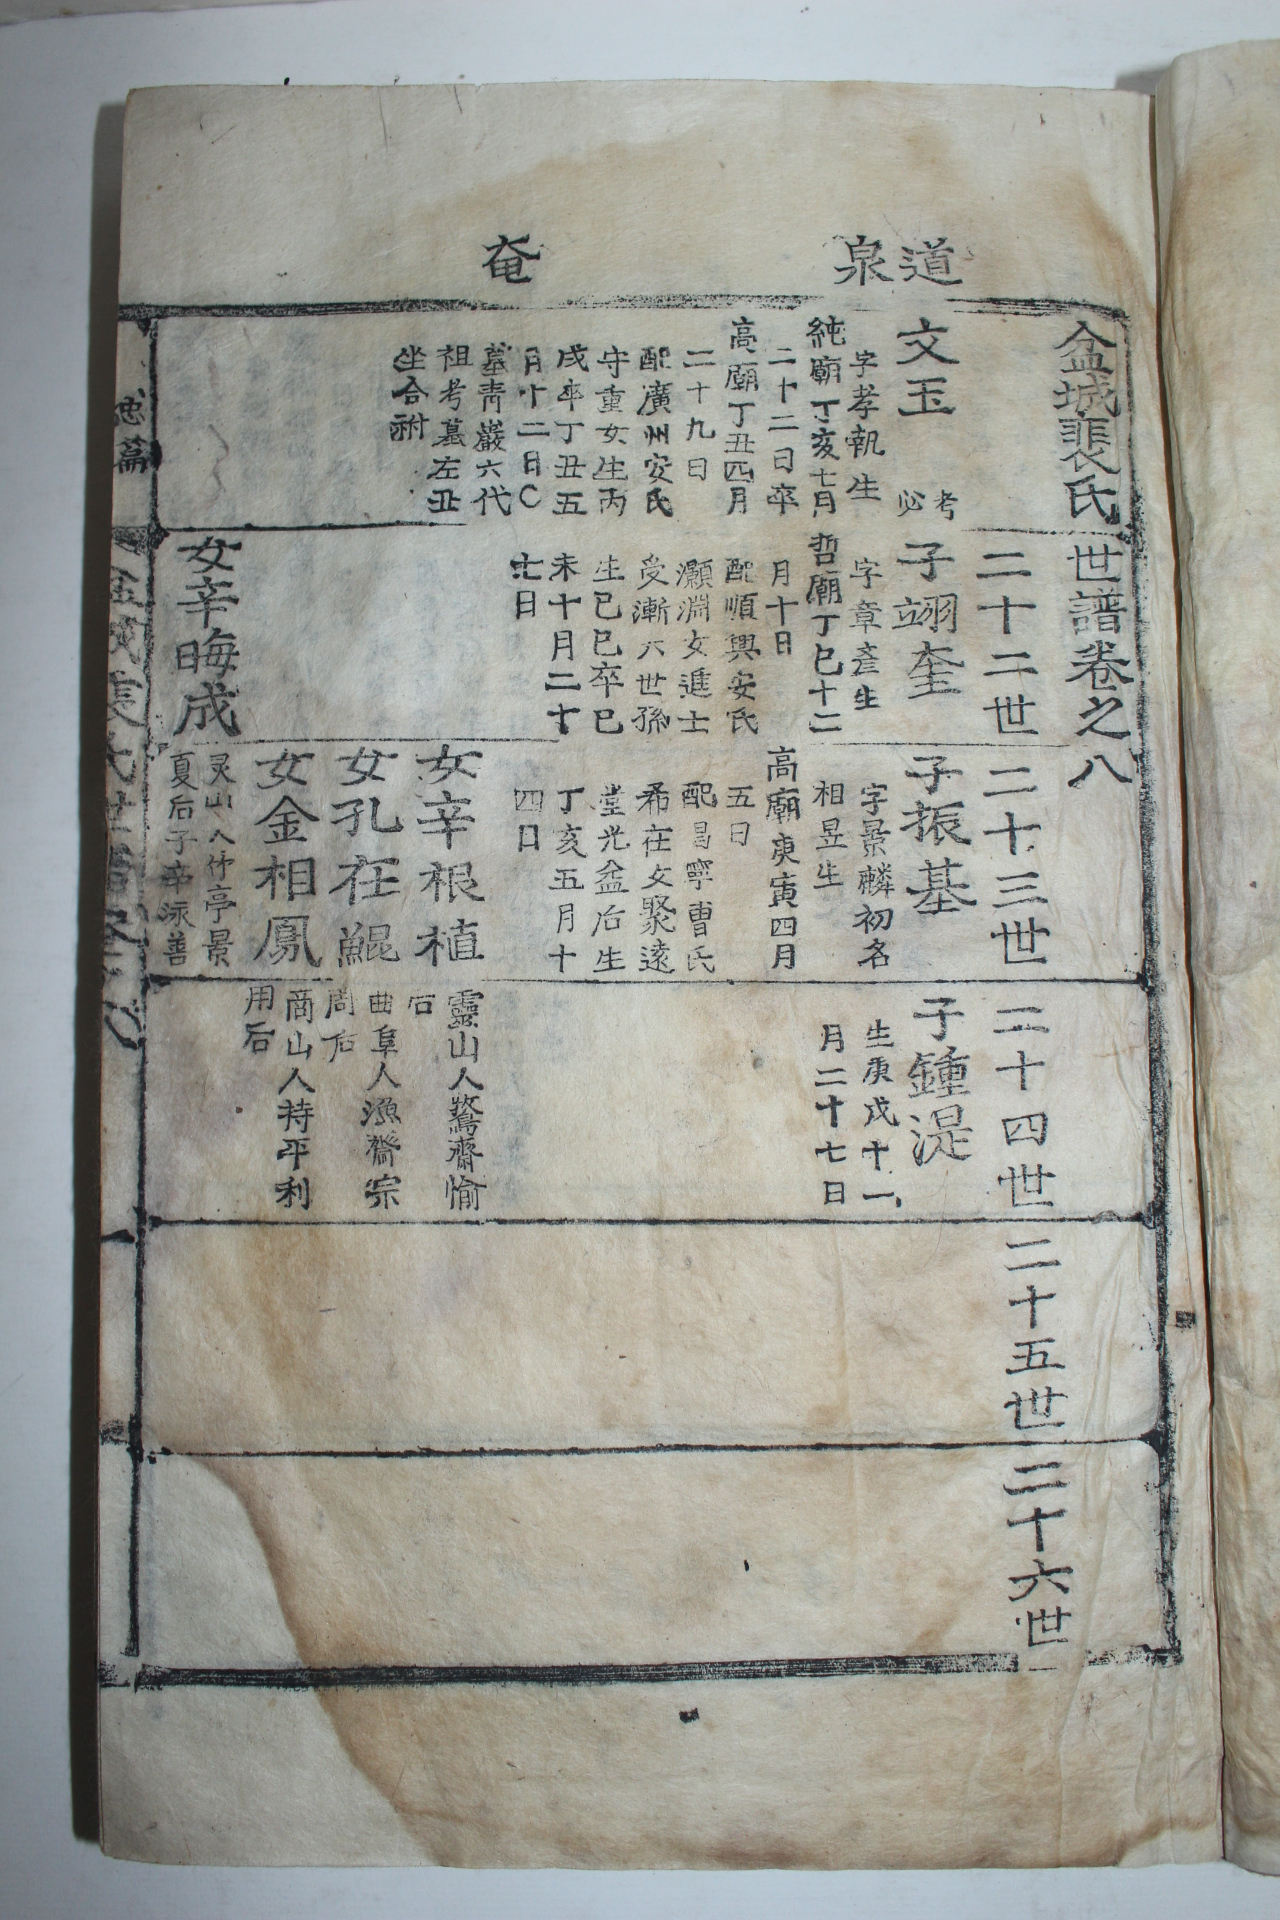 道泉
奄
盆城裵氏世譜卷之八
二十二世
二十三世
二十四世
二十五世
二十六世
文玉
考必
字孝執生
純廟丁亥七月
二十二日卒
高廟丁丑四月
二十九日
配廣州安氏
守重女生丙
戌卒丁丑五
月十二日○
墓靑巖六代
祖考墓左丑
坐合祔
子翊奎
字章彦生
哲廟丁巳十二
月十日
配順興安氏
灝淵女進士
受漸六世孫
生己巳卒己
未十月二十
七日
女辛晦成
灵山人竹亭景
夏后子辛泳善
子振基
字景麟初名
相昱生
高廟庚寅四月
五日
配昌寧曺氏
希在女聚遠
堂光益后生
丁亥五月十
四日
女辛根植
靈山人鷔齋愉
后
女孔在鯤
曲阜人漁齋宗
周后
女金相鳳
商山人持平利
用后
子鍾湜
生庚戌十一
月二十七日
忠篇
盆城裵氏世譜卷之八